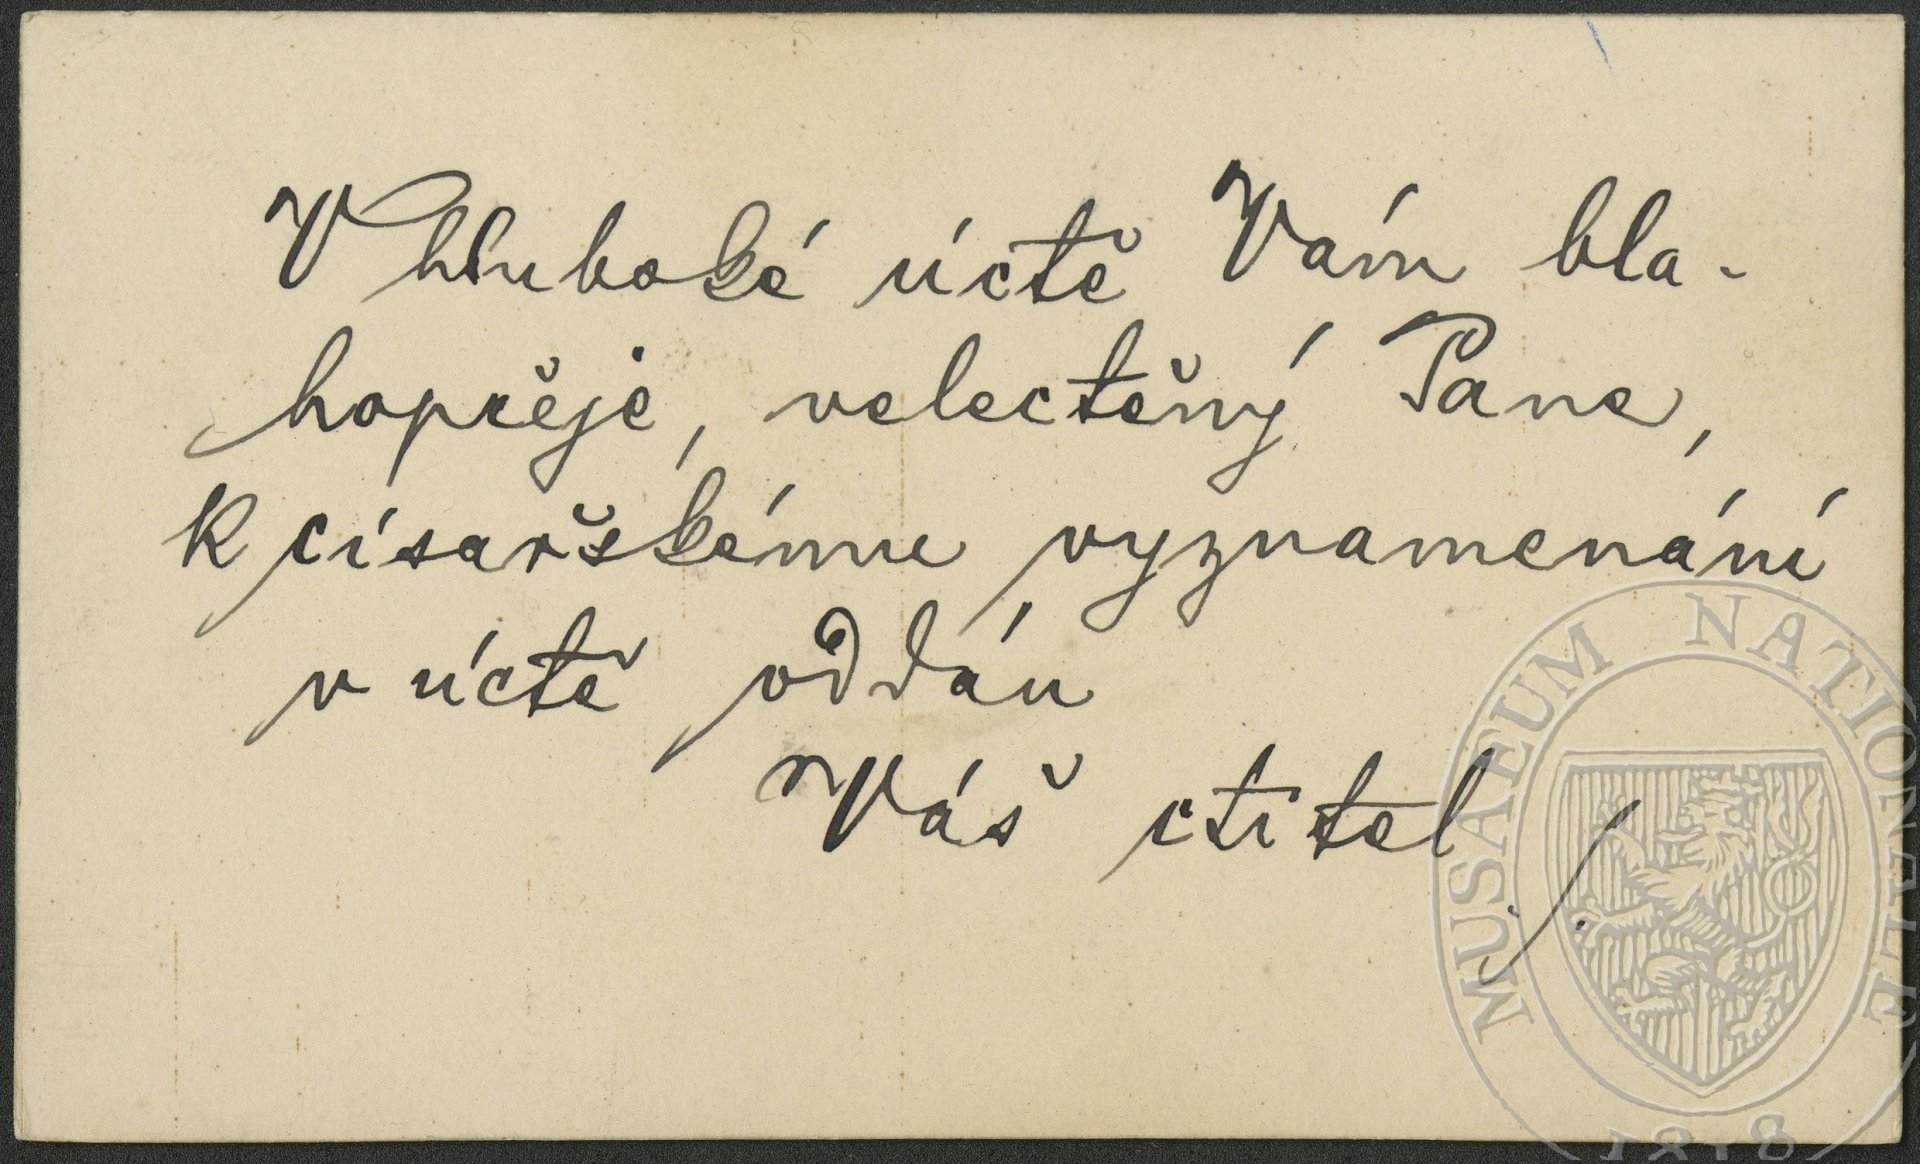 V hluboké úctě Vám bla-
hopřeje, velectěný Pane,
k císařskému vyznamenání
v úctě oddán
Váš ctitel
MUSAEUM NATIONALE
1818